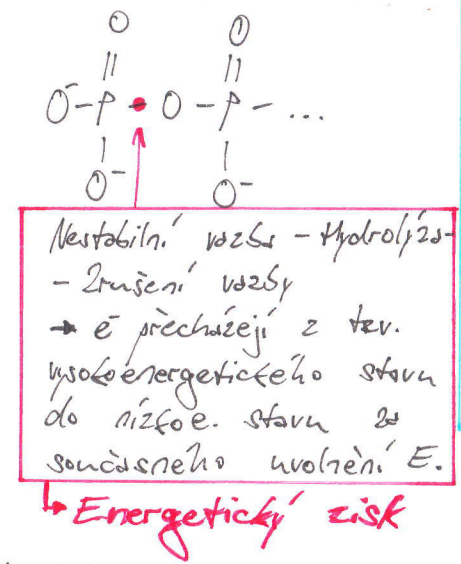 O O
|| ||
O⁻-P-O-P-...
| |
O⁻ O⁻
Nestabilní vazba - Hydrolýza-
- Zrušení vazby
→ e⁻ přecházejí z tzv.
vysokoenergetického stavu
do nízkoe. stavu za
současného uvolnění E.
↳ Energetický zisk